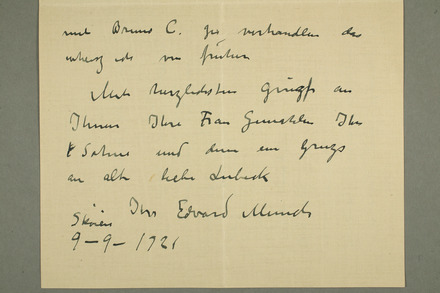 mit Bruno C. zu verhandlen das
von früher
Mit herzlichsten Grüsse an
Ihnen Ihre Frau Gemahlin Ihre
Söhne und dann ein Gruss
an alte liebe Lübeck
Ihr Edvard Munch
Skøien
9–9–1921